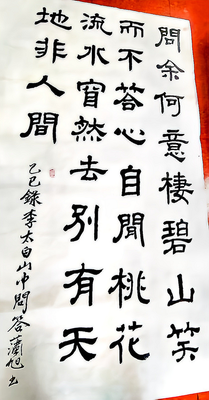 問余何意棲碧山笑
而不答心自閒桃花
流水窅然去別有天
地非人間
乙巳錄李太白山中問答瀟旭书